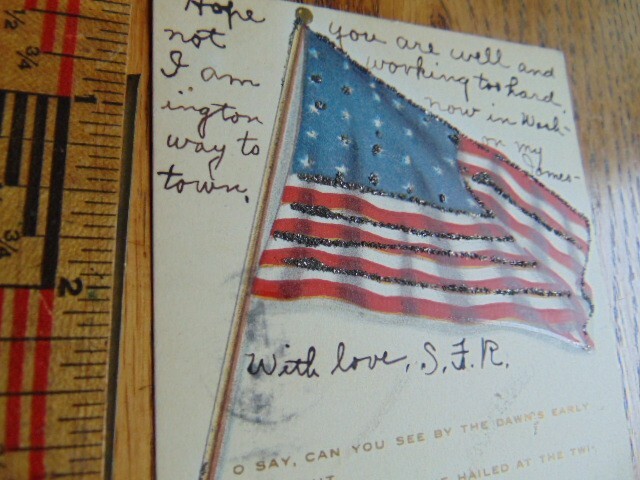 Hope you are well and
not working too hard.
I am now in Wash-
ington on my
way to James-
town.
With love, S.F.R.
O SAY, CAN YOU SEE BY THE DAWN'S EARLY
HAILED AT THE TWI-
1/2
3/4
1
3/4
2